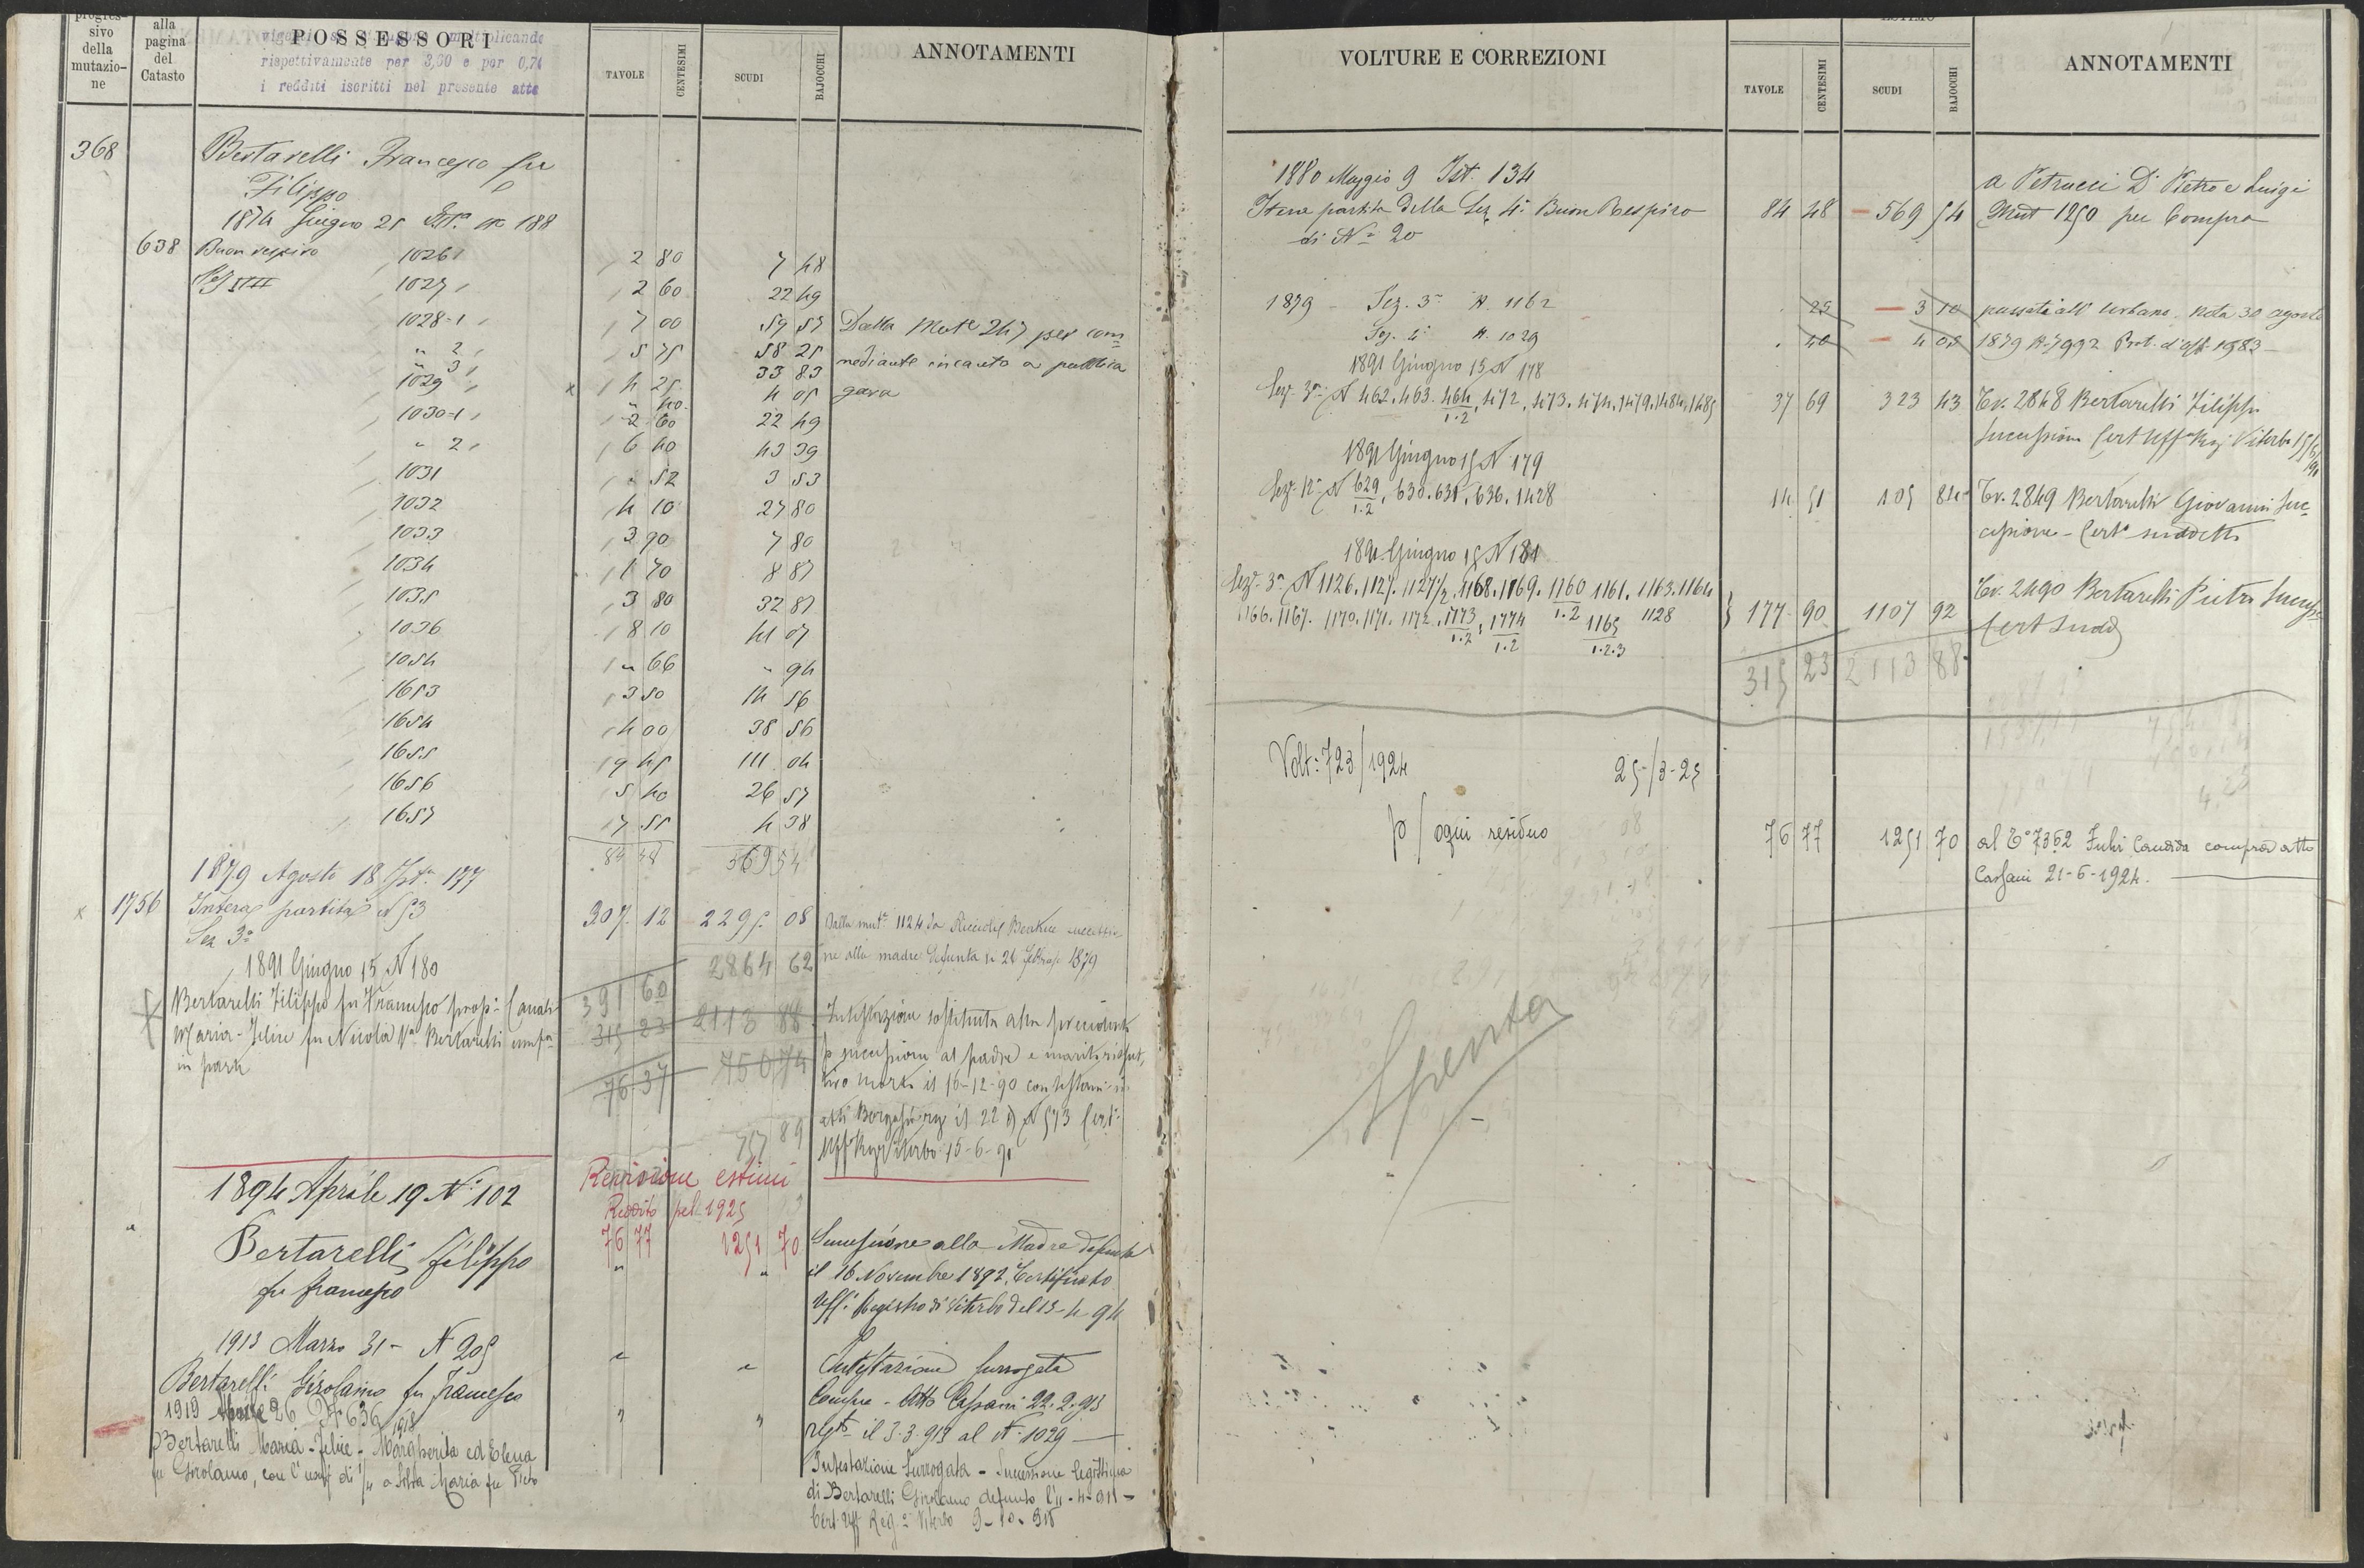 progres-
sivo
della
mutazio-
ne
alla
pagina
del
Catasto
POSSESSORI
rispettivamente per 3,00 e per 0,74
i redditi iscritti nel presente atto
TAVOLE
CENTESIMI
SCUDI
BAJOCCHI
ANNOTAMENTI
368
Bertarelli Francesco fu
Filippo
1874 Giugno 25 Ist.a N. 188
638 Buon respiro 1026 2 80 7 48
1027 2 60 22 49
1028-1 7 00 59 57 Dalla Mut.e 247 per com
" 2 5 75 58 25 mediante incanto a pubblica
" 3 4 25 33 83 gara
1029 " 40 4 05
1030-1 2 60 22 49
" 2 6 40 43 39
1031 " 52 3 53
1032 4 10 27 80
1033 3 90 7 80
1034 1 70 8 87
1035 3 80 32 87
1036 8 10 41 07
1054 " 66 " 94
1653 3 50 14 56
1654 4 00 38 56
1655 9 45 111 04
1656 5 40 26 57
1657 7 55 4 38
84 48 569 54
1879 Agosto 18 Ist.a 177
x 1756 Intera partita N 53 307 12 2295 08 Dalla mut.e 1124 da Beatrice
Sez 3a ne alla madre defunta li 21 Febbraio 1879
2864 62
1891 Giugno 15 N 180
Bertarelli Filippo fu Francesco prop: Canali 391 60
Maria-Felice fu Nicola Va Bertarelli usufr. 315 23 2113 88 Intestazione sostituita alla precedente
in parte 76 37 750 74 p successione al padre e marito rispet
tivo morto il 16-12-90 con testam. in
atti Borgassi reg il 22 N 573 Cert.
757 89 Uff Reg Viterbo 15-6-91
1894 Aprile 19 N. 102
Revisione estimi
Reddito pel 1925
76 77 1251 70
Bertarelli Filippo
fu Francesco
Successione alla Madre defunta
il 16 Novembre 1892, Certificato
Uff. Registro di Viterbo del 13-4-94
1913 Marzo 31 - N 205
Bertarelli Girolamo fu Francesco
Intestazione surrogata
Compra - Atto Cassani 22.2.913
regto il 3.3.913 al N. 1029
1919 26 N. 636
1918
Bertarelli Maria-Felice-Margherita ed Elena
fu Girolamo, con l'usuf di 1/4 a Maria fu Pietro
Intestazione Surrogata - Successione legittima
di Bertarelli Girolamo defunto l'11-4-918 -
Cert. Uff Reg.o Viterbo 9-10-918
VOLTURE E CORREZIONI
TAVOLE
CENTESIMI
SCUDI
BAJOCCHI
ANNOTAMENTI
1880 Maggio 9 Ist. 134 a Petrucci D. Pietro e Luigi
Intera partita della Sez 4a Buon Respiro 84 48 569 54 Mut 1250 per Compra
di N. 20
1879 - Sez. 3a N. 1162 25 3 10 passati all'Urbano, nota 30 agosto
Sez. 4a N. 1029 40 4 05 1879 N. 7992 Prot. d'uff. 1983
1891 Giugno 15 N 178
Sez. 3a N 462. 463. 464, 472, 473. 474. 1479. 1484. 1485 37 69 323 43 Tv. 2848 Bertarelli Filippo
1.2
Successione Cert Uff Reg Viterbo 15/6/91
1891 Giugno 15 N 179
Sez. 12a N 629, 630. 631. 636. 1428 14 51 105 84 Tv. 2849 Bertarelli Giovanni Suc
1.2
cessione - Cert.o suddetto
1891 Giugno 15 N 181
Sez. 3a N 1126. 1127. 1127 1/2. 1168. 1169. 1160 1161. 1163. 1164 Tv. 2490 Bertarelli Pietro Success.
1166. 1167. 1170. 1171. 1172. 1173, 1774 1.2 1165 1128 177 90 1107 92 Cert Sudd
1.2 1.2 1.2.3
315 23 2113 88
Volt: 723/1924 25/3-25
p/ ogni residuo 76 77 1251 70 al Tv 7362 Candida compra atto
Cassani 21-6-1924.
Spenta